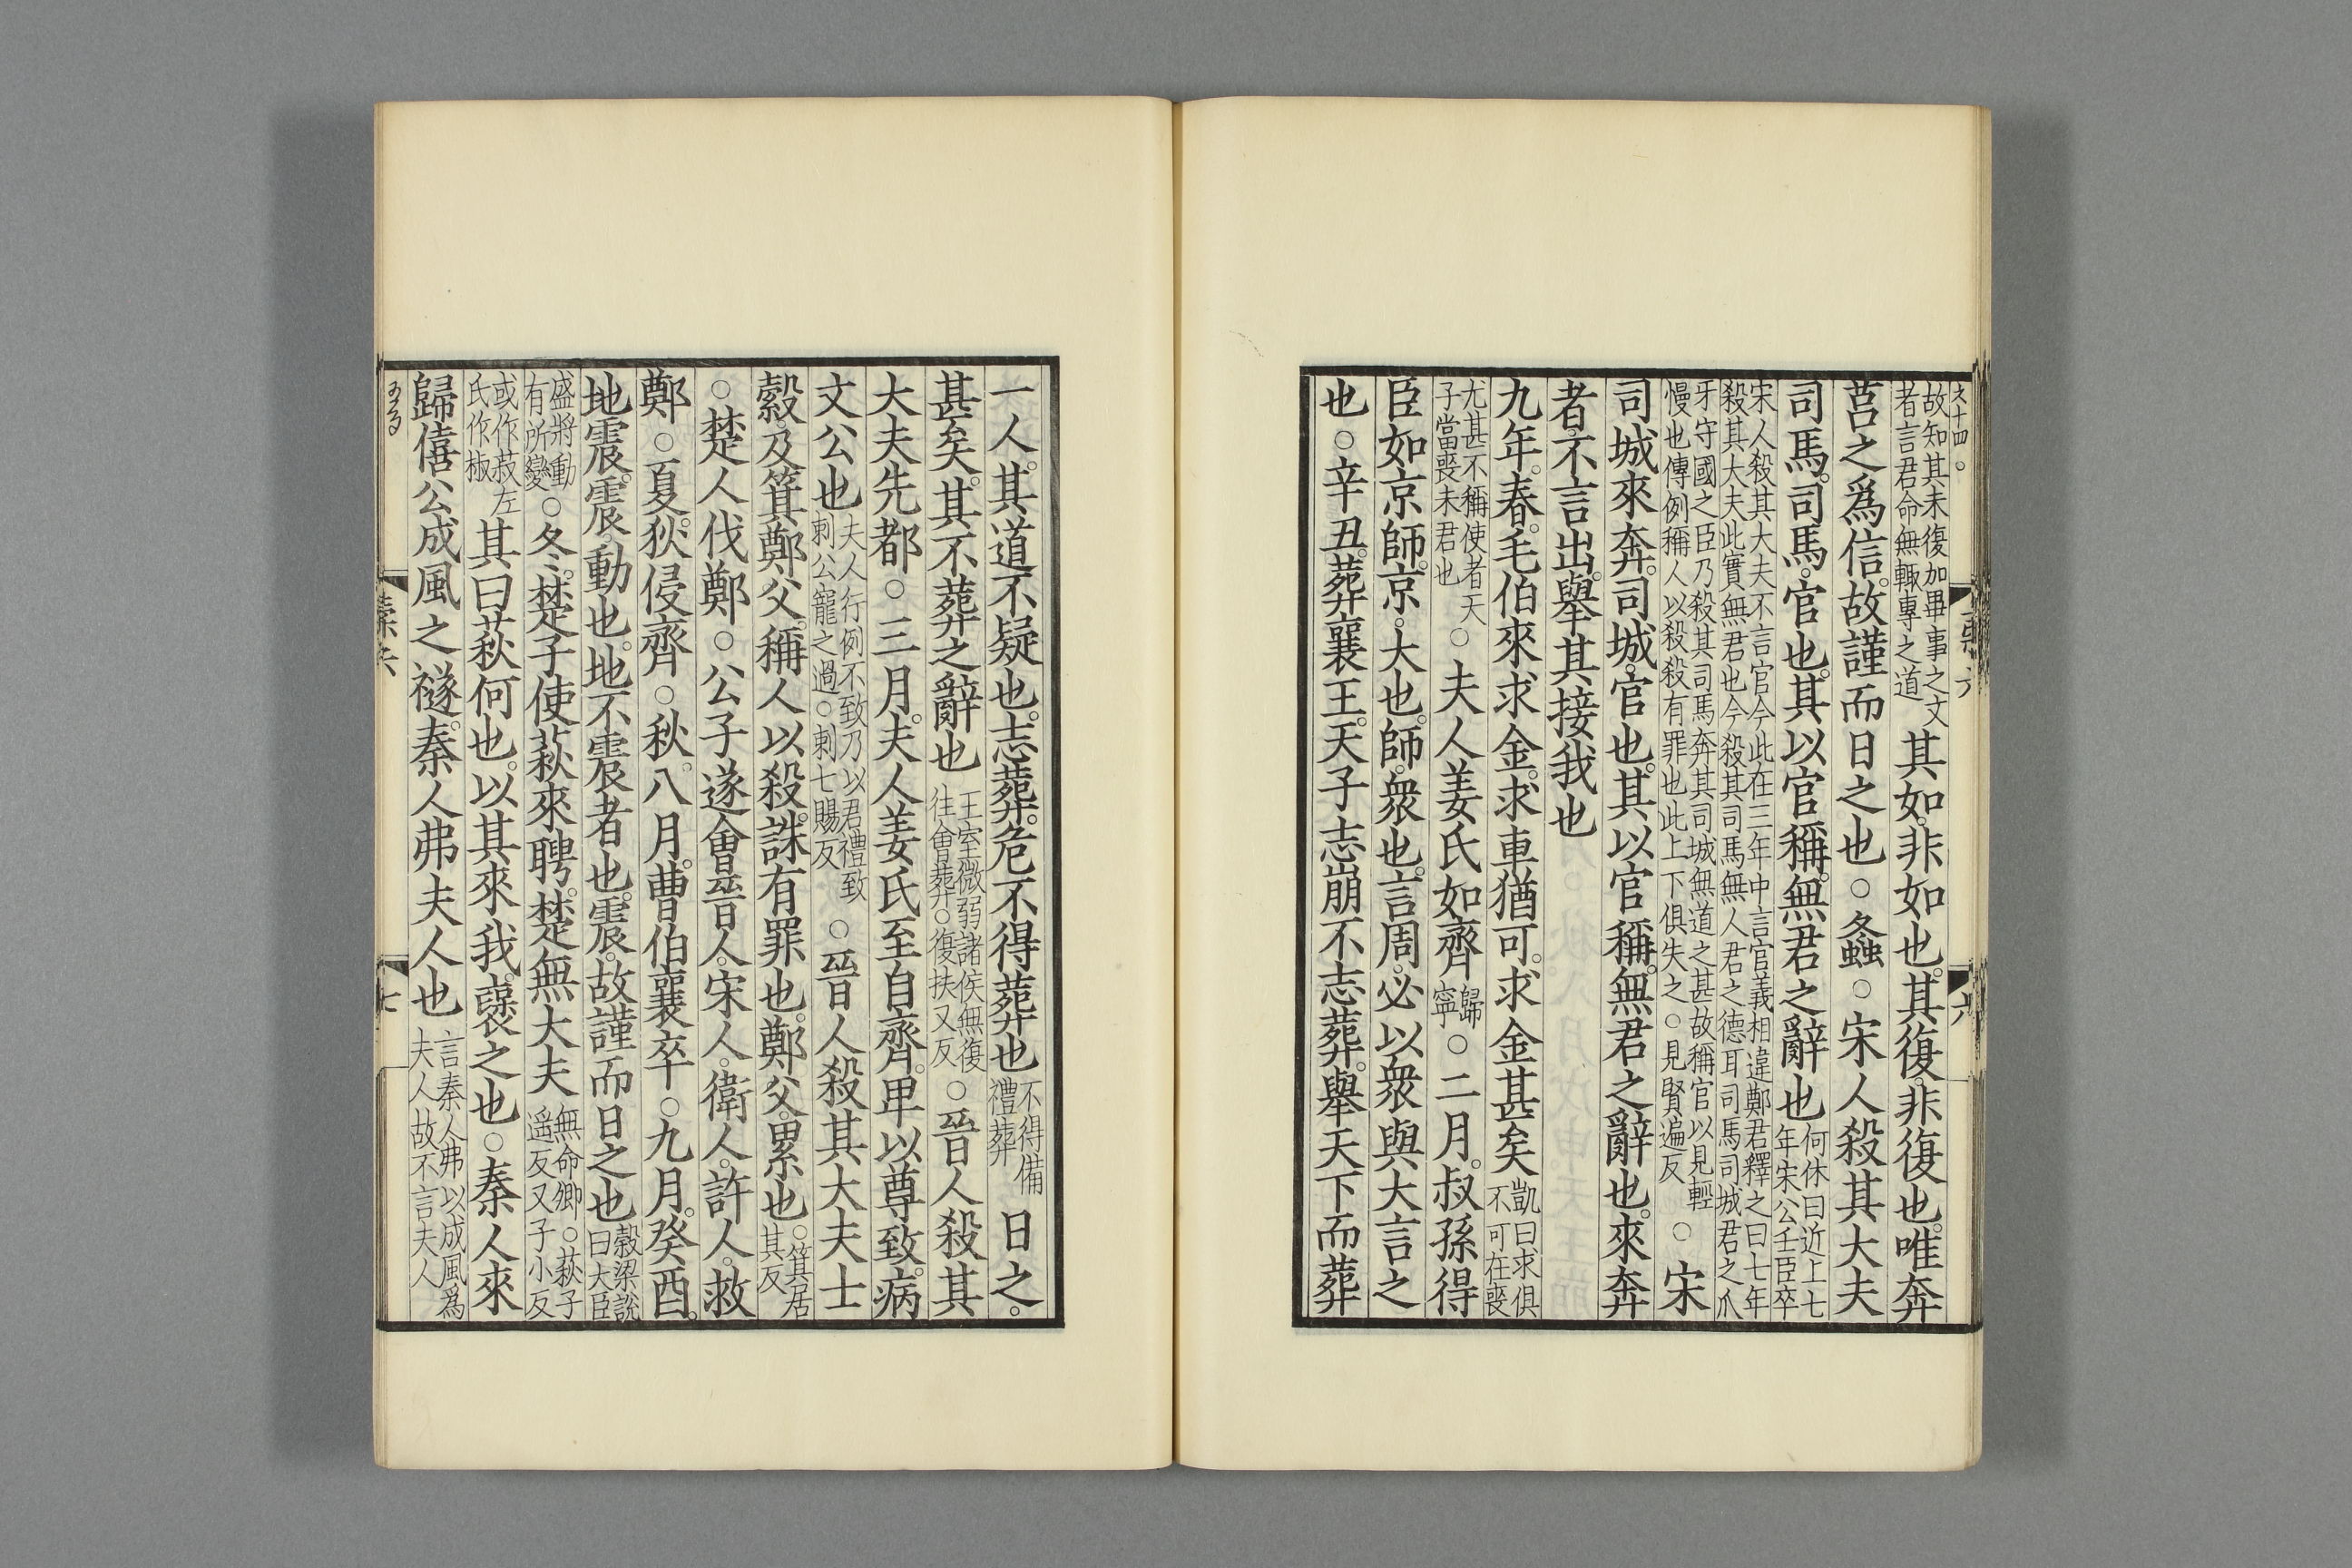 故知其未復加畢事之文者言君命無輙專之道其如非如也其復非復也唯奔
莒之爲信故謹而日之也○螽○宋人殺其大夫
司馬司馬官也其以官稱無君之辭也何休曰近上七年宋公壬臣卒
宋人殺其大夫不言官今此在三年中言官義相違鄭君釋之曰七年殺其大夫此實無君也今殺其司馬無人君之德耳司馬司城君之爪
牙守國之臣乃殺其司馬奔其司城無道之甚故稱官以見輕慢也傳例稱人以殺殺有罪也此上下俱失之○見賢遍反○宋
司城來奔司城官也其以官稱無君之辭也來奔
者不言出舉其接我也
九年春毛伯來求金求車猶可求金甚矣凱曰求俱不可在喪
尤甚不稱使者天子當喪未君也○夫人姜氏如齊歸寧○二月叔孫得
臣如京師京大也師衆也言周必以衆與大言之
也○辛丑葬襄王天子志崩不志葬舉天下而葬
一人其道不疑也志葬危不得葬也不得備禮葬日之
甚矣其不葬之辭也王室微弱諸侯無復往會葬○復扶又反○晉人殺其
大夫先都○三月夫人姜氏至自齊卑以尊致病
文公也夫人行例不致乃以君禮致刺公寵之過○刺七賜反○晉人殺其大夫士
縠及箕鄭父稱人以殺誅有罪也鄭父累也○箕居其反
○楚人伐鄭○公子遂會晉人宋人衛人許人救
鄭○夏狄侵齊○秋八月曹伯襄卒○九月癸酉
地震震動也地不震者也震故謹而日之也穀梁說曰大臣
盛將動有所變○冬楚子使萩來聘楚無大夫無命卿○萩子遥反又子小反
或作菽左氏作椒其曰萩何也以其來我襃之也○秦人來
歸僖公成風之襚秦人弗夫人也言秦人弗以成風爲夫人故不言夫人